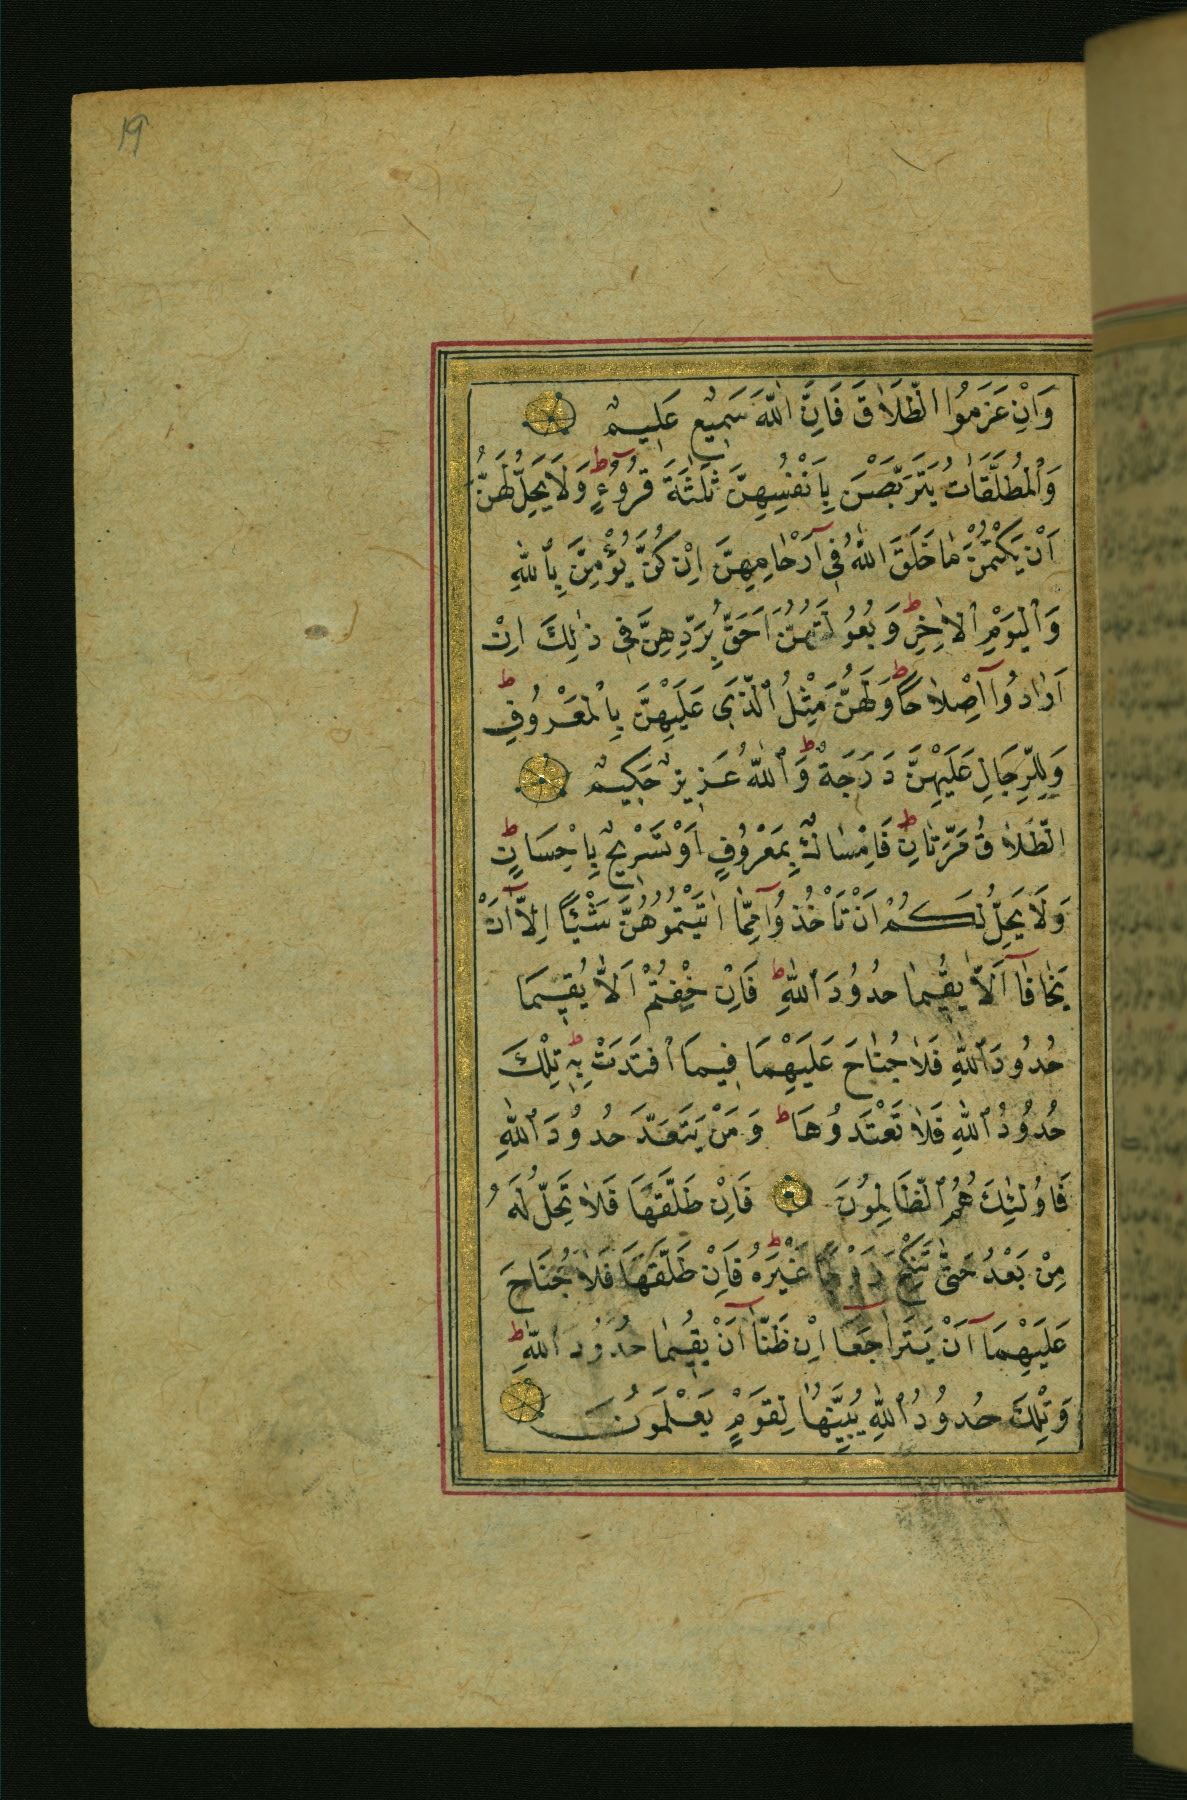 19
وَاِنْ عَزَمُوا الطَّلَاقَ فَاِنَّ اللّٰهَ سَمِيعٌ عَلِيمٌ
وَالْمُطَلَّقَاتُ يَتَرَبَّصْنَ بِاَنْفُسِهِنَّ ثَلٰثَةَ قُرُوءٍ ط وَلَا يَحِلُّ لَهُنَّ
اَنْ يَكْتُمْنَ مَا خَلَقَ اللّٰهُ فِي اَرْحَامِهِنَّ اِنْ كُنَّ يُؤْمِنَّ بِاللّٰهِ
وَالْيَوْمِ الْاٰخِرِ ط وَبُعُولَتُهُنَّ اَحَقُّ بِرَدِّهِنَّ فِي ذٰلِكَ اِنْ
اَرَادُوا اِصْلَاحًا ط وَلَهُنَّ مِثْلُ الَّذِي عَلَيْهِنَّ بِالْمَعْرُوفِ ط
وَلِلرِّجَالِ عَلَيْهِنَّ دَرَجَةٌ ط وَاللّٰهُ عَزِيزٌ حَكِيمٌ
الطَّلَاقُ مَرَّتَانِ ط فَاِمْسَاكٌ بِمَعْرُوفٍ اَوْ تَسْرِيحٌ بِاِحْسَانٍ ط
وَلَا يَحِلُّ لَكُمْ اَنْ تَأْخُذُوا مِمَّا اٰتَيْتُمُوهُنَّ شَيْئًا اِلَّا اَنْ
يَخَافَا اَلَّا يُقِيمَا حُدُودَ اللّٰهِ ط فَاِنْ خِفْتُمْ اَلَّا يُقِيمَا
حُدُودَ اللّٰهِ فَلَا جُنَاحَ عَلَيْهِمَا فِيمَا افْتَدَتْ بِهٖ ط تِلْكَ
حُدُودُ اللّٰهِ فَلَا تَعْتَدُوهَا ط وَمَنْ يَتَعَدَّ حُدُودَ اللّٰهِ
فَاُولٰئِكَ هُمُ الظَّالِمُونَ فَاِنْ طَلَّقَهَا فَلَا تَحِلُّ لَهُ
مِنْ بَعْدُ حَتّٰى تَنْكِحَ زَوْجًا غَيْرَهُ ط فَاِنْ طَلَّقَهَا فَلَا جُنَاحَ
عَلَيْهِمَا اَنْ يَتَرَاجَعَا اِنْ ظَنَّا اَنْ يُقِيمَا حُدُودَ اللّٰهِ ط
وَتِلْكَ حُدُودُ اللّٰهِ يُبَيِّنُهَا لِقَوْمٍ يَعْلَمُونَ